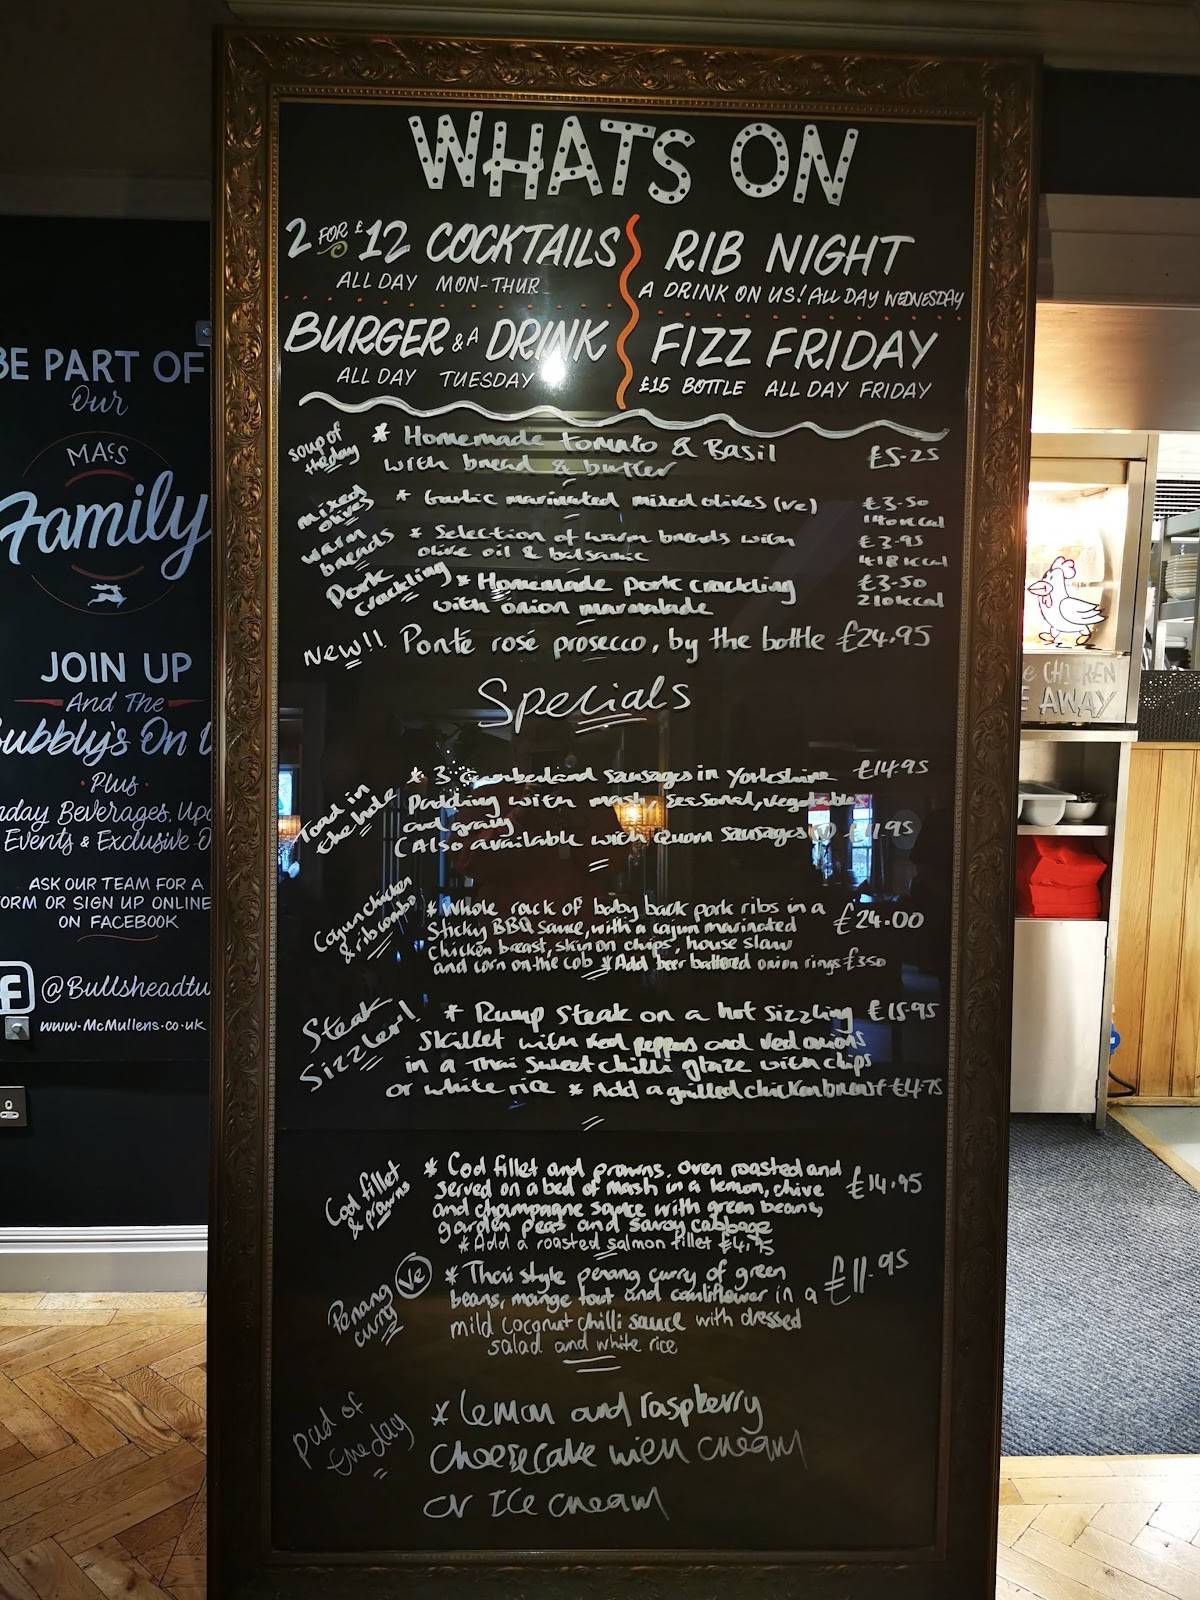 WHATS ON
2 FOR £12 COCKTAILS
ALL DAY MON-THUR
RIB NIGHT
A DRINK ON US! ALL DAY WEDNESDAY
BURGER & A DRINK
ALL DAY TUESDAY
FIZZ FRIDAY
£15 BOTTLE ALL DAY FRIDAY
soup of
the day
* Homemade tomato & Basil
with bread & butter
£5.25
mixed
olives
* Garlic marinated mixed olives (ve)
£3.50
140kcal
warm
breads
* Selection of warm breads with
olive oil & balsamic
£3.95
418kcal
Pork
crackling
* Homemade pork crackling
with onion marmalade
£3.50
210kcal
New!! Ponté rosé prosecco, by the bottle £24.95
Specials
Toad in
the hole
* 3 Cumberland sausages in Yorkshire £14.95
Pudding with mash, seasonal, vegetables
and gravy
(Also available with Quorn sausages
Cajun chicken
& rib combo
* Whole rack of baby back pork ribs in a £24.00
Sticky BBQ Sauce, with a cajun marinated
Chicken breast, skin on chips, house slaw
and corn on the cob * Add beer battered onion rings £3.50
Steak
Sizzler!
* Rump Steak on a hot sizzling £15.95
skillet with red peppers and red onions
in a Thai sweet chilli glaze with chips
or white rice * Add a grilled chicken breast £4.75
Cod fillet
& prawns
* Cod fillet and prawns, oven roasted and £14.95
served on a bed of mash in a lemon, chive
and champagne sauce with green beans,
garden peas and savoy cabbage
* Add a roasted salmon fillet £4.75
Penang
curry
Ve
* Thai style penang curry of green £11.95
beans, mange tout and cauliflower in a
mild coconut chilli sauce with dressed
salad and white rice
pud of
the day
* Lemon and raspberry
Cheesecake with cream
or Ice cream
BE PART OF
Our
MACS
Family
JOIN UP
And The
Bubbly's On
Plus
Beverages,
Events & Exclusive
ASK OUR TEAM FOR A
FORM OR SIGN UP ONLINE
ON FACEBOOK
f @Bullsheadtu
www.McMullens.co.uk
CHICKEN
AWAY